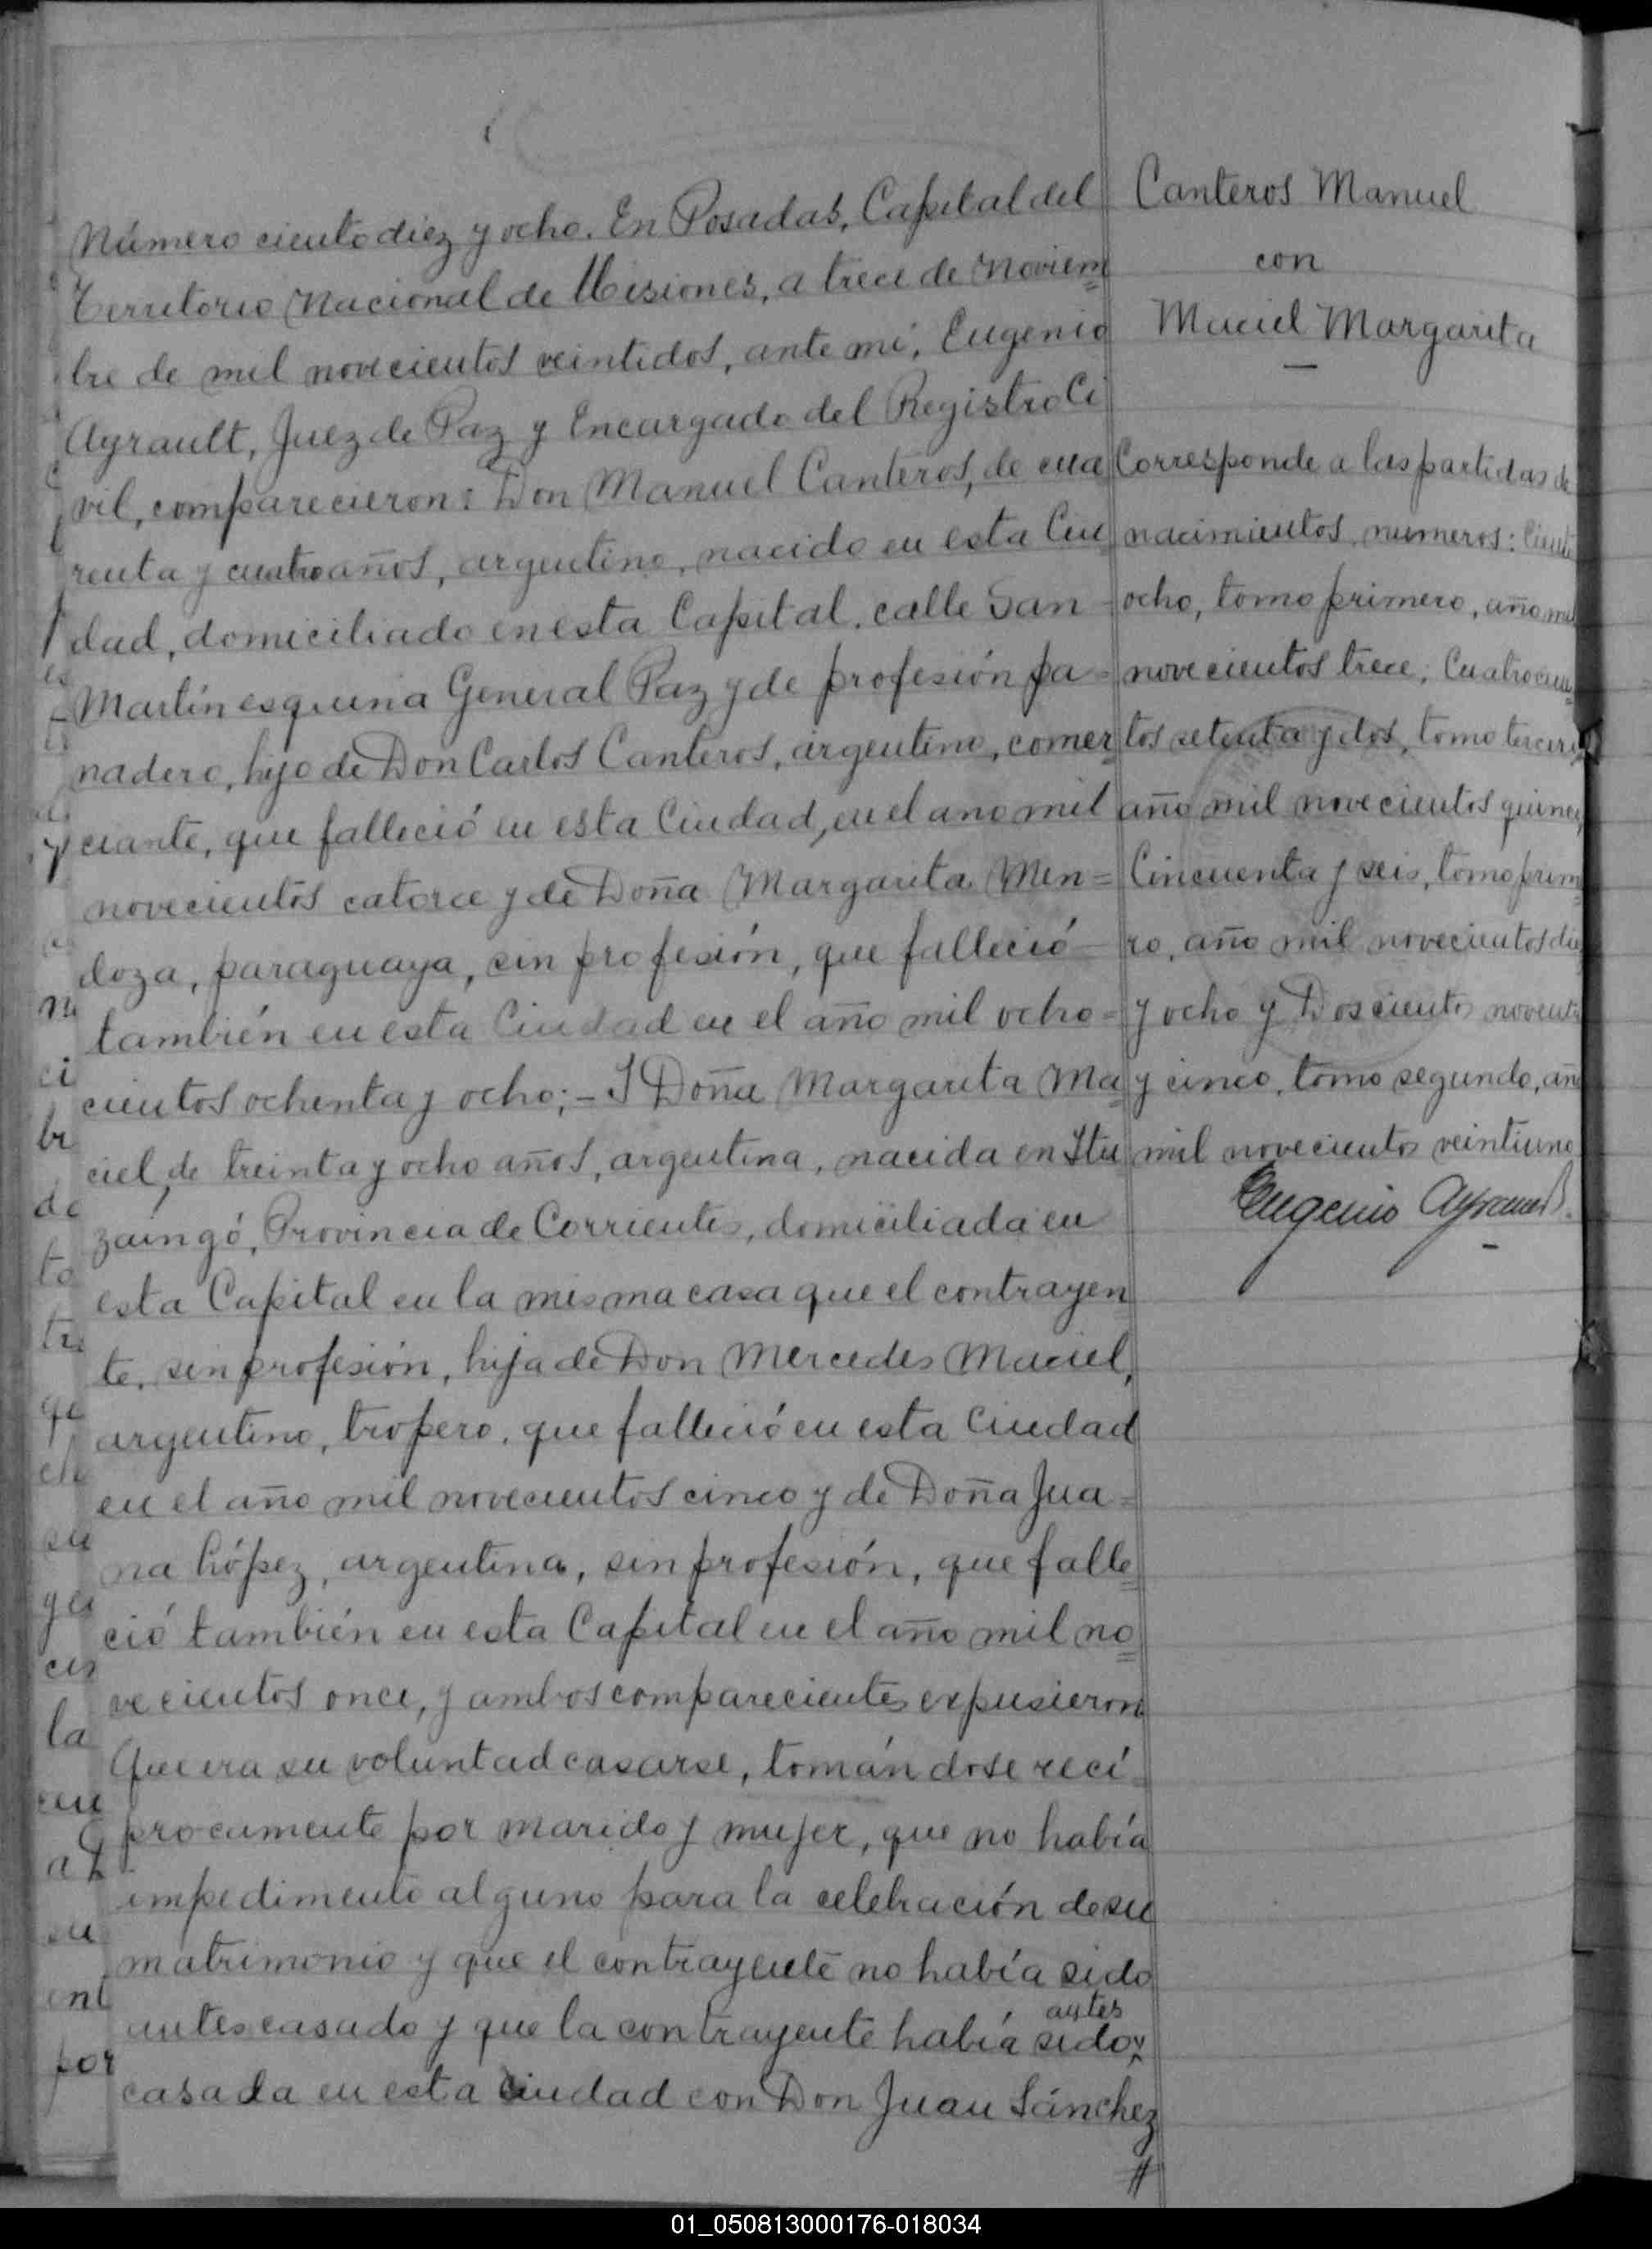 Número ciento diez y ocho. En Posadas, Capital del
Territorio Nacional de Misiones, a trece de Noviem=
bre de mil novecientos veintidos, ante mí, Eugenio
Ayrault, Juez de Paz y Encargado del Registro Ci
vil, comparecieron: Don Manuel Canteros, de cua
renta y cuatro años, argentino, nacido en esta Ciu=
dad, domiciliado en esta Capital, calle San=
Martín esquina General Paz y de profesión pa=
nadero, hijo de Don Carlos Canteros, argentino, comer=
ciante, que falleció en esta Ciudad, en el ano mil
novecientos catorce y de Doña Margarita Men=
doza, paraguaya, sin profesión, que falleció
también en esta Ciudad en el año mil ocho=
cientos ochenta y ocho;- I Doña Margarita Ma=
ciel, de treinta y ocho años, argentina, nacida en Itu
zaingó, Provincia de Corrientes, domiciliada en
esta Capital en la misma casa que el contrayen
te, sin profesión, hija de Don Mercedes Maciel,
argentino, tropero, que falleció en esta Ciudad
en el año mil novecientos cinco y de Doña Jua=
na López, argentina, sin profesión, que falle=
ció también en esta Capital en el año mil no=
vecientos once, y ambos comparecientes expusieron
Que era su voluntad casarse, tomándose recí=
procamente por marido y mujer, que no había
impedimento alguno para la celebración de su
matrimonio y que el contrayente no había sido
antes casado y que la contrayente había sido antes
casada en esta Ciudad con Don Juan Sánchez
#
Canteros Manuel
con
Maciel Margarita
—
Corresponde a las partidas de
nacimientos, numeros: Ciento
ocho, tomo primero, año mil
novecientos trece; Cuatrocien=
tos setenta y dos, tomo tercero,
año mil novecientos quince,
Cincuenta y seis, tomo prime=
ro, año mil novecientos diez
y ocho y Doscientos noventa
y cinco, tomo segundo, año
mil novecientos veintiuno
Eugenio Ayrault.
01_050813000176-018034